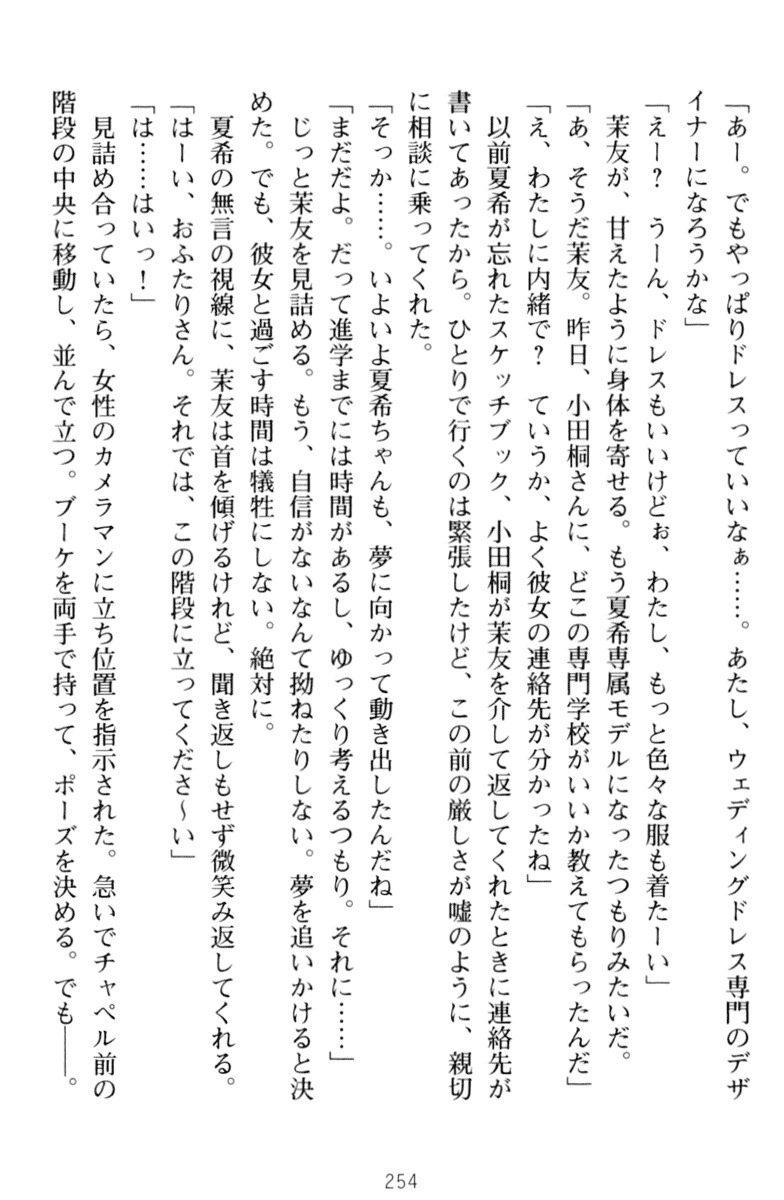 「あー。でもやっぱりドレスっていいなぁ……。あたし、ウェディングドレス専門のデザ
イナーになろうかな」
「えー？　うーん、ドレスもいいけどぉ、わたし、もっと色々な服も着たーい」
　茉友が、甘えたように身体を寄せる。もう夏希専属モデルになったつもりみたいだ。
「あ、そうだ茉友。昨日、小田桐さんに、どこの専門学校がいいか教えてもらったんだ」
「え、わたしに内緒で？　ていうか、よく彼女の連絡先が分かったね」
　以前夏希が忘れたスケッチブック、小田桐が茉友を介して返してくれたときに連絡先が
書いてあったから。ひとりで行くのは緊張したけど、この前の厳しさが嘘のように、親切
に相談に乗ってくれた。
「そっか……。いよいよ夏希ちゃんも、夢に向かって動き出したんだね」
「まだだよ。だって進学までには時間があるし、ゆっくり考えるつもり。それに……」
　じっと茉友を見詰める。もう、自信がないなんて拗ねたりしない。夢を追いかけると決
めた。でも、彼女と過ごす時間は犠牲にしない。絶対に。
　夏希の無言の視線に、茉友は首を傾げるけれど、聞き返しもせず微笑み返してくれる。
「はーい、おふたりさん。それでは、この階段に立ってくださ～い」
「は……はいっ！」
　見詰め合っていたら、女性のカメラマンに立ち位置を指示された。急いでチャペル前の
階段の中央に移動し、並んで立つ。ブーケを両手で持って、ポーズを決める。でも――。
254